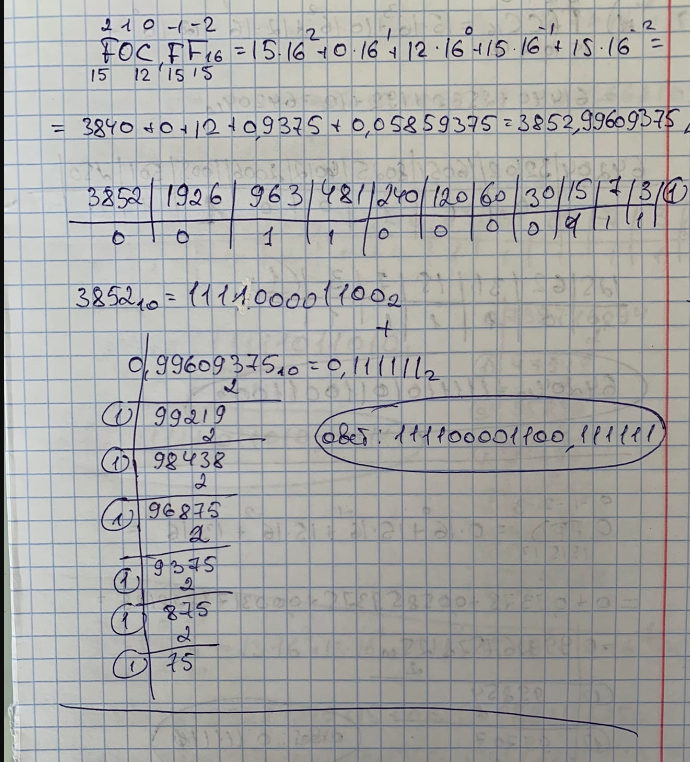 2 1 0 -1 -2
F0C,FF₁₆ = 15·16² + 0·16¹ + 12·16⁰ + 15·16⁻¹ + 15·16⁻² =
15 12 15 15
= 3840 + 0 + 12 + 0,9375 + 0,05859375 = 3852,99609375
3852 | 1926 | 963 | 481 | 240 | 120 | 60 | 30 | 15 | 7 | 3 | 1
0 | 0 | 1 | 1 | 0 | 0 | 0 | 0 | 1 | 1 | 1
3852₁₀ = 111100001100₂
+
0,99609375₁₀ = 0,111111₂
2
1 | 99219
2
1 | 98438
2
1 | 96875
2
1 | 9375
2
1 | 875
2
1 | 75
Ответ: 111100001100,111111